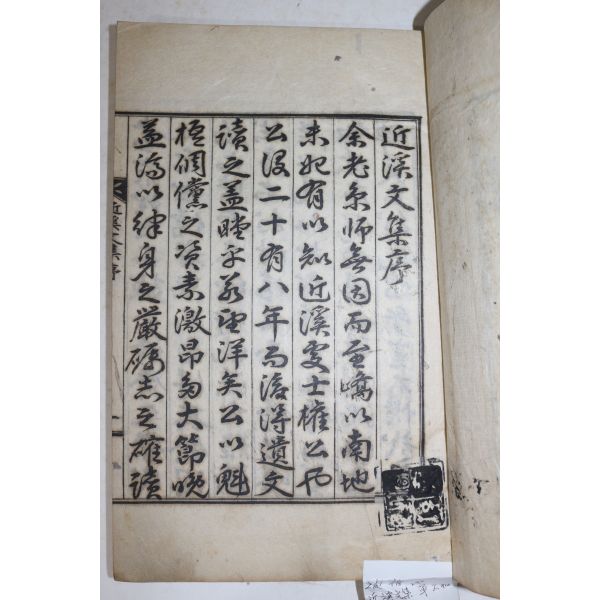 近溪文集序
余老京師無因而至嶠以南地
未始有以知近溪處士權公也
公沒二十有八年而後得遺文
讀之益瞠乎若望洋矣公以魁
梧倜儻之資素激昂多大節晚
益濟以律身之嚴礪志之確讀